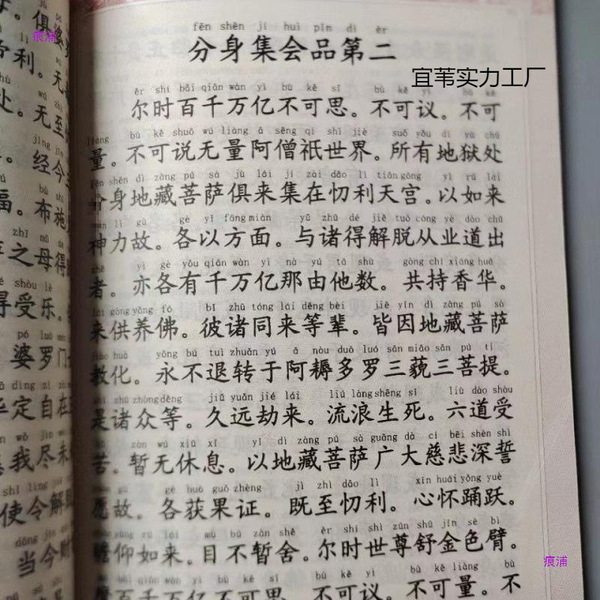 fēn shēn jí huì pǐn dì èr
分身集会品第二
宜苇实力工厂
痕浦
ěr shí bǎi qiān wàn yì bù kě sī bù kě yì bù kě
尔时百千万亿不可思。不可议。不可
liàng bù kě shuō wú liàng ā sēng qí shì jiè suǒ yǒu dì yù chù
量。不可说无量阿僧祇世界。所有地狱处
fēn shēn dì zàng pú sà jù lái jí zài dāo lì tiān gōng yǐ rú lái
分身地藏菩萨俱来集在忉利天宫。以如来
shén lì gù gè yǐ fāng miàn yǔ zhū dé jiě tuō cóng yè dào chū
神力故。各以方面。与诸得解脱从业道出
zhě yì gè yǒu qiān wàn yì nà yóu tā shù gòng chí xiāng huā
者。亦各有千万亿那由他数。共持香华。
lái gòng yǎng fó bǐ zhū tóng lái děng bèi jiē yīn dì zàng pú sà
来供养佛。彼诸同来等辈。皆因地藏菩萨
jiào huà yǒng bù tuì zhuǎn yú ā nòu duō luó sān miǎo sān pú tí
教化。永不退转于阿耨多罗三藐三菩提。
shì zhū zhòng děng jiǔ yuǎn jié lái liú làng shēng sǐ liù dào shòu
是诸众等。久远劫来。流浪生死。六道受
kǔ zàn wú xiū xī yǐ dì zàng pú sà guǎng dà cí bēi shēn shì
苦。暂无休息。以地藏菩萨广大慈悲深誓
yuàn gù gè huò guǒ zhèng jì zhì dāo lì xīn huái yǒng yuè
愿故。各获果证。既至忉利。心怀踊跃。
zhān yǎng rú lái mù bù zàn shě ěr shí shì zūn shū jīn sè bì
瞻仰如来。目不暂舍。尔时世尊舒金色臂。
bǎi qiān wàn yì bù kě sī bù kě yì bù kě liàng bù
百千万亿不可思。不可议。不可量。不
痕浦